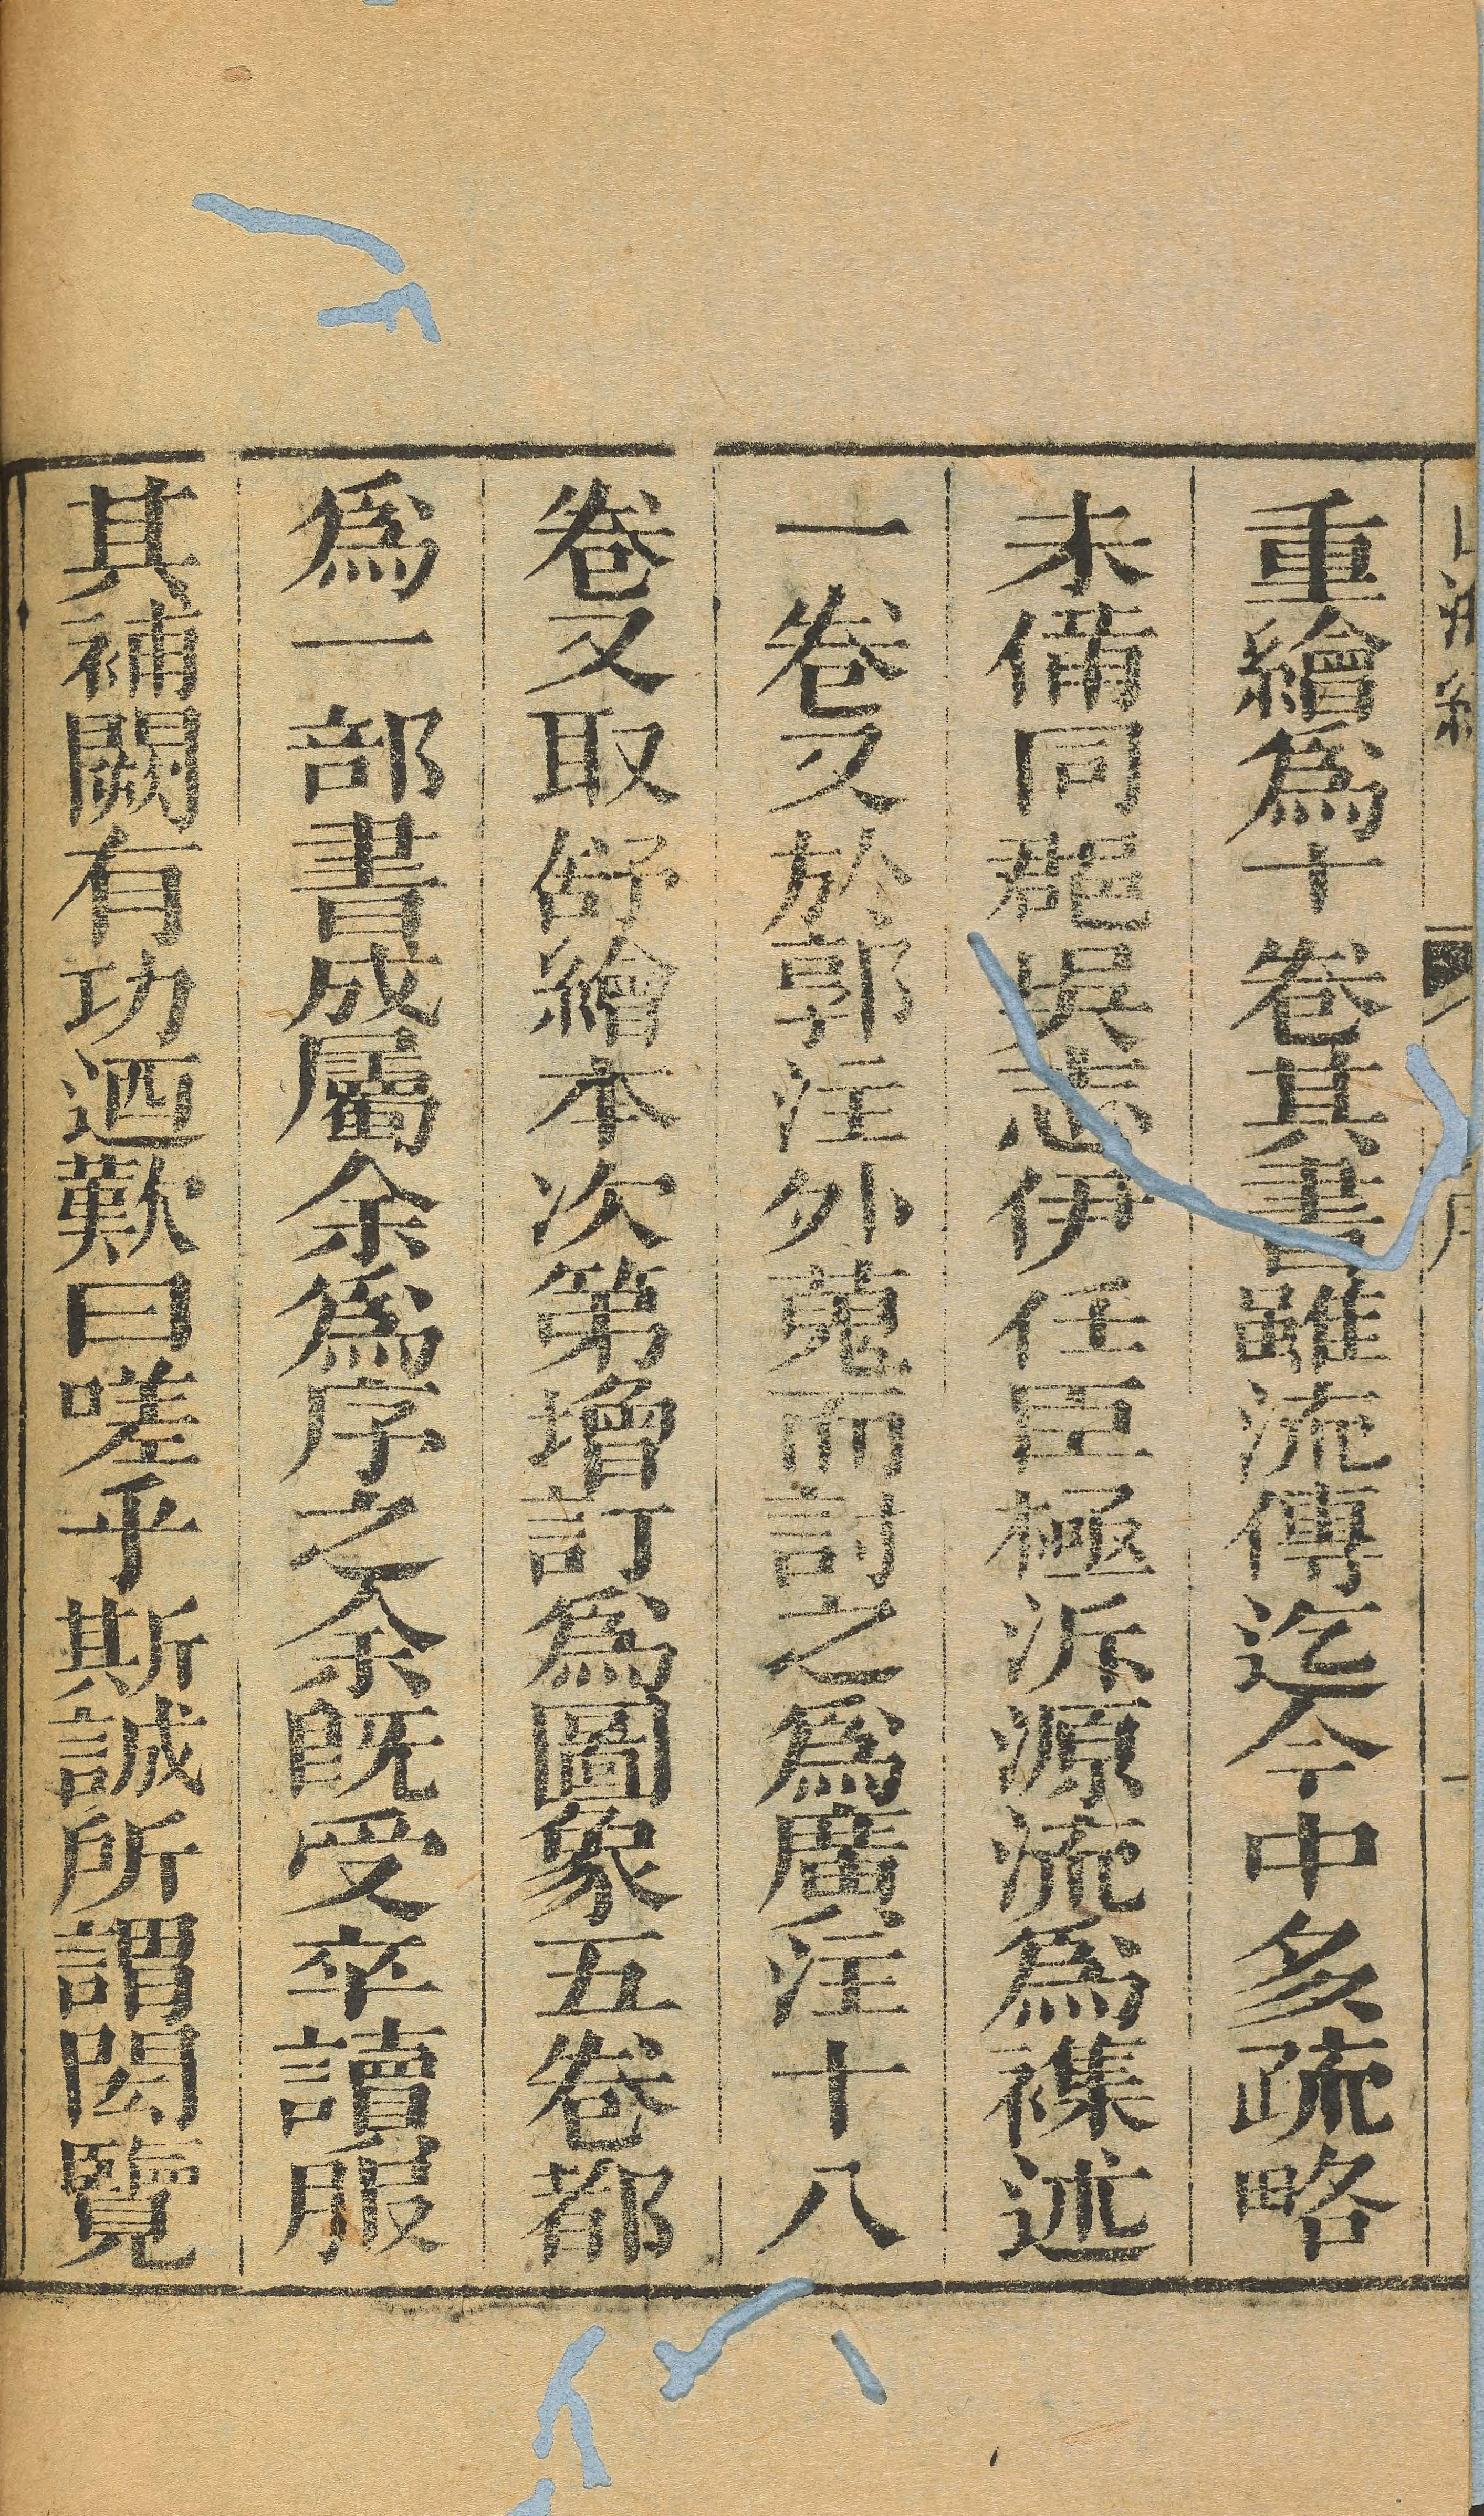 重繪爲十卷其書雖流傳迄今中多疏略
未備同郡吳志伊任臣極泝源流爲襍述
一卷又於郭注外蒐而討之爲廣注十八
卷又取舒繪本次第增訂爲圖象五卷都
爲一部書成屬余爲序之余既受卒讀服
其補闕有功迺歎曰嗟乎斯誠所謂閎覽